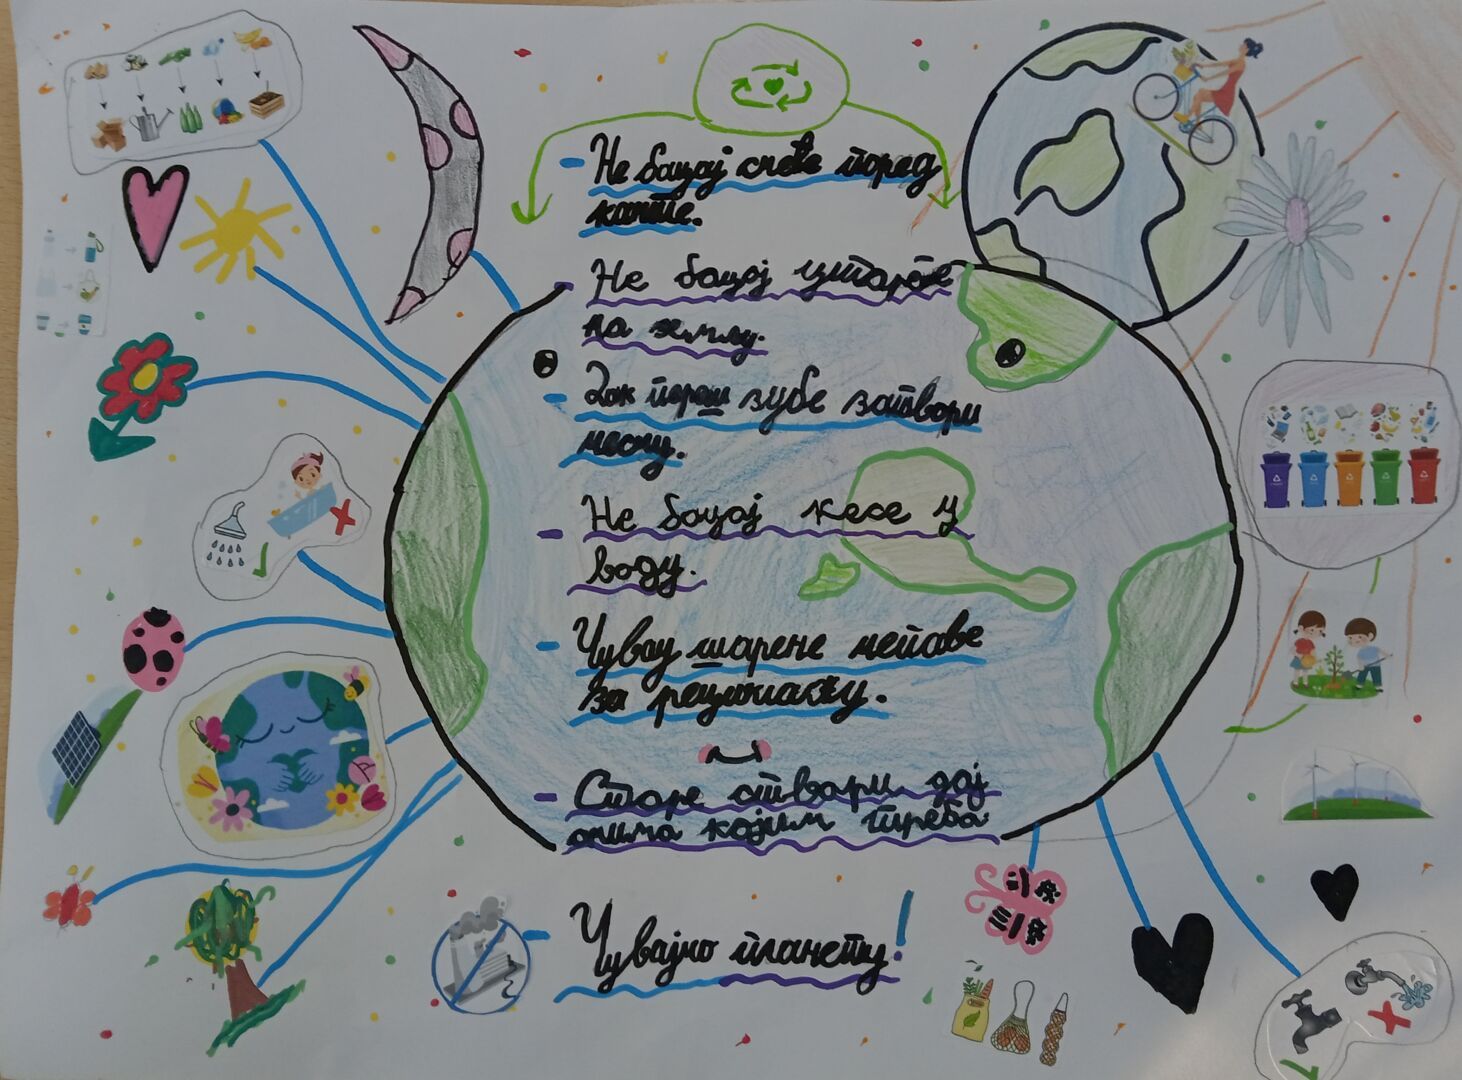 - Не бацај смеће поред
канте.
- Не бацај цигарете
на земљу.
- Док переш зубе затвори
чесму.
- Не бацај кесе у
воду.
- Чувај шарене чепове
за рециклажу.
- Старе ствари дај
онима којим треба
- Чувајмо планету!